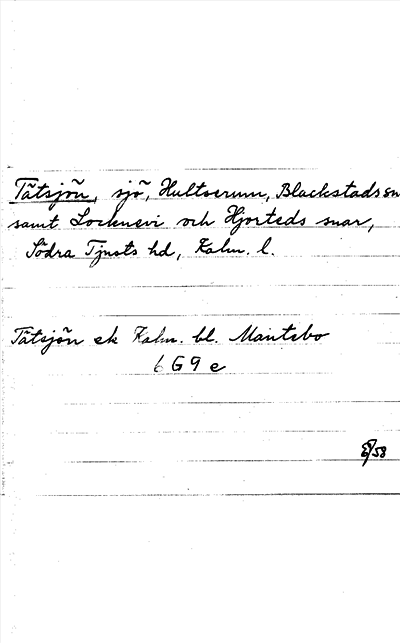 Tätsjön, sjö, Hultserum, Blackstads sn
samt Locknevi och Hjorteds snar,
Södra Tjusts hd, Kalm. l.
Tätsjön ek Kalm. bl. Mantebo
6 G 9 e